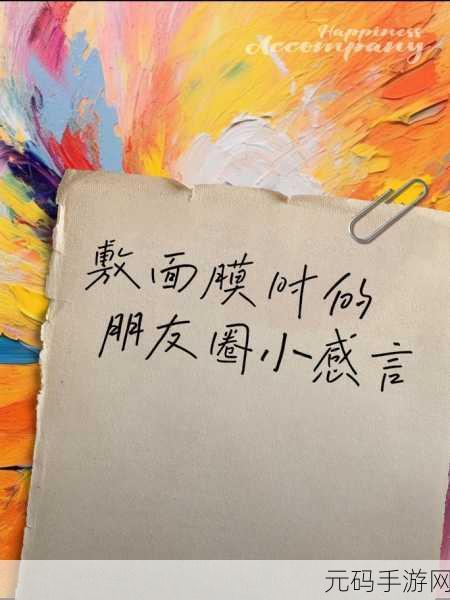 Happiness
Accompany
敷面膜时的
朋友圈小感言
元码手游网